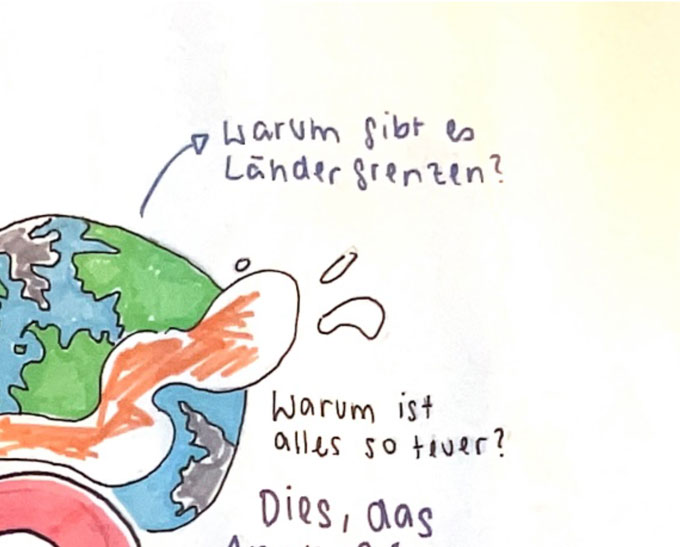 Warum gibt es
Ländergrenzen?
Warum ist
alles so teuer?
Dies, das